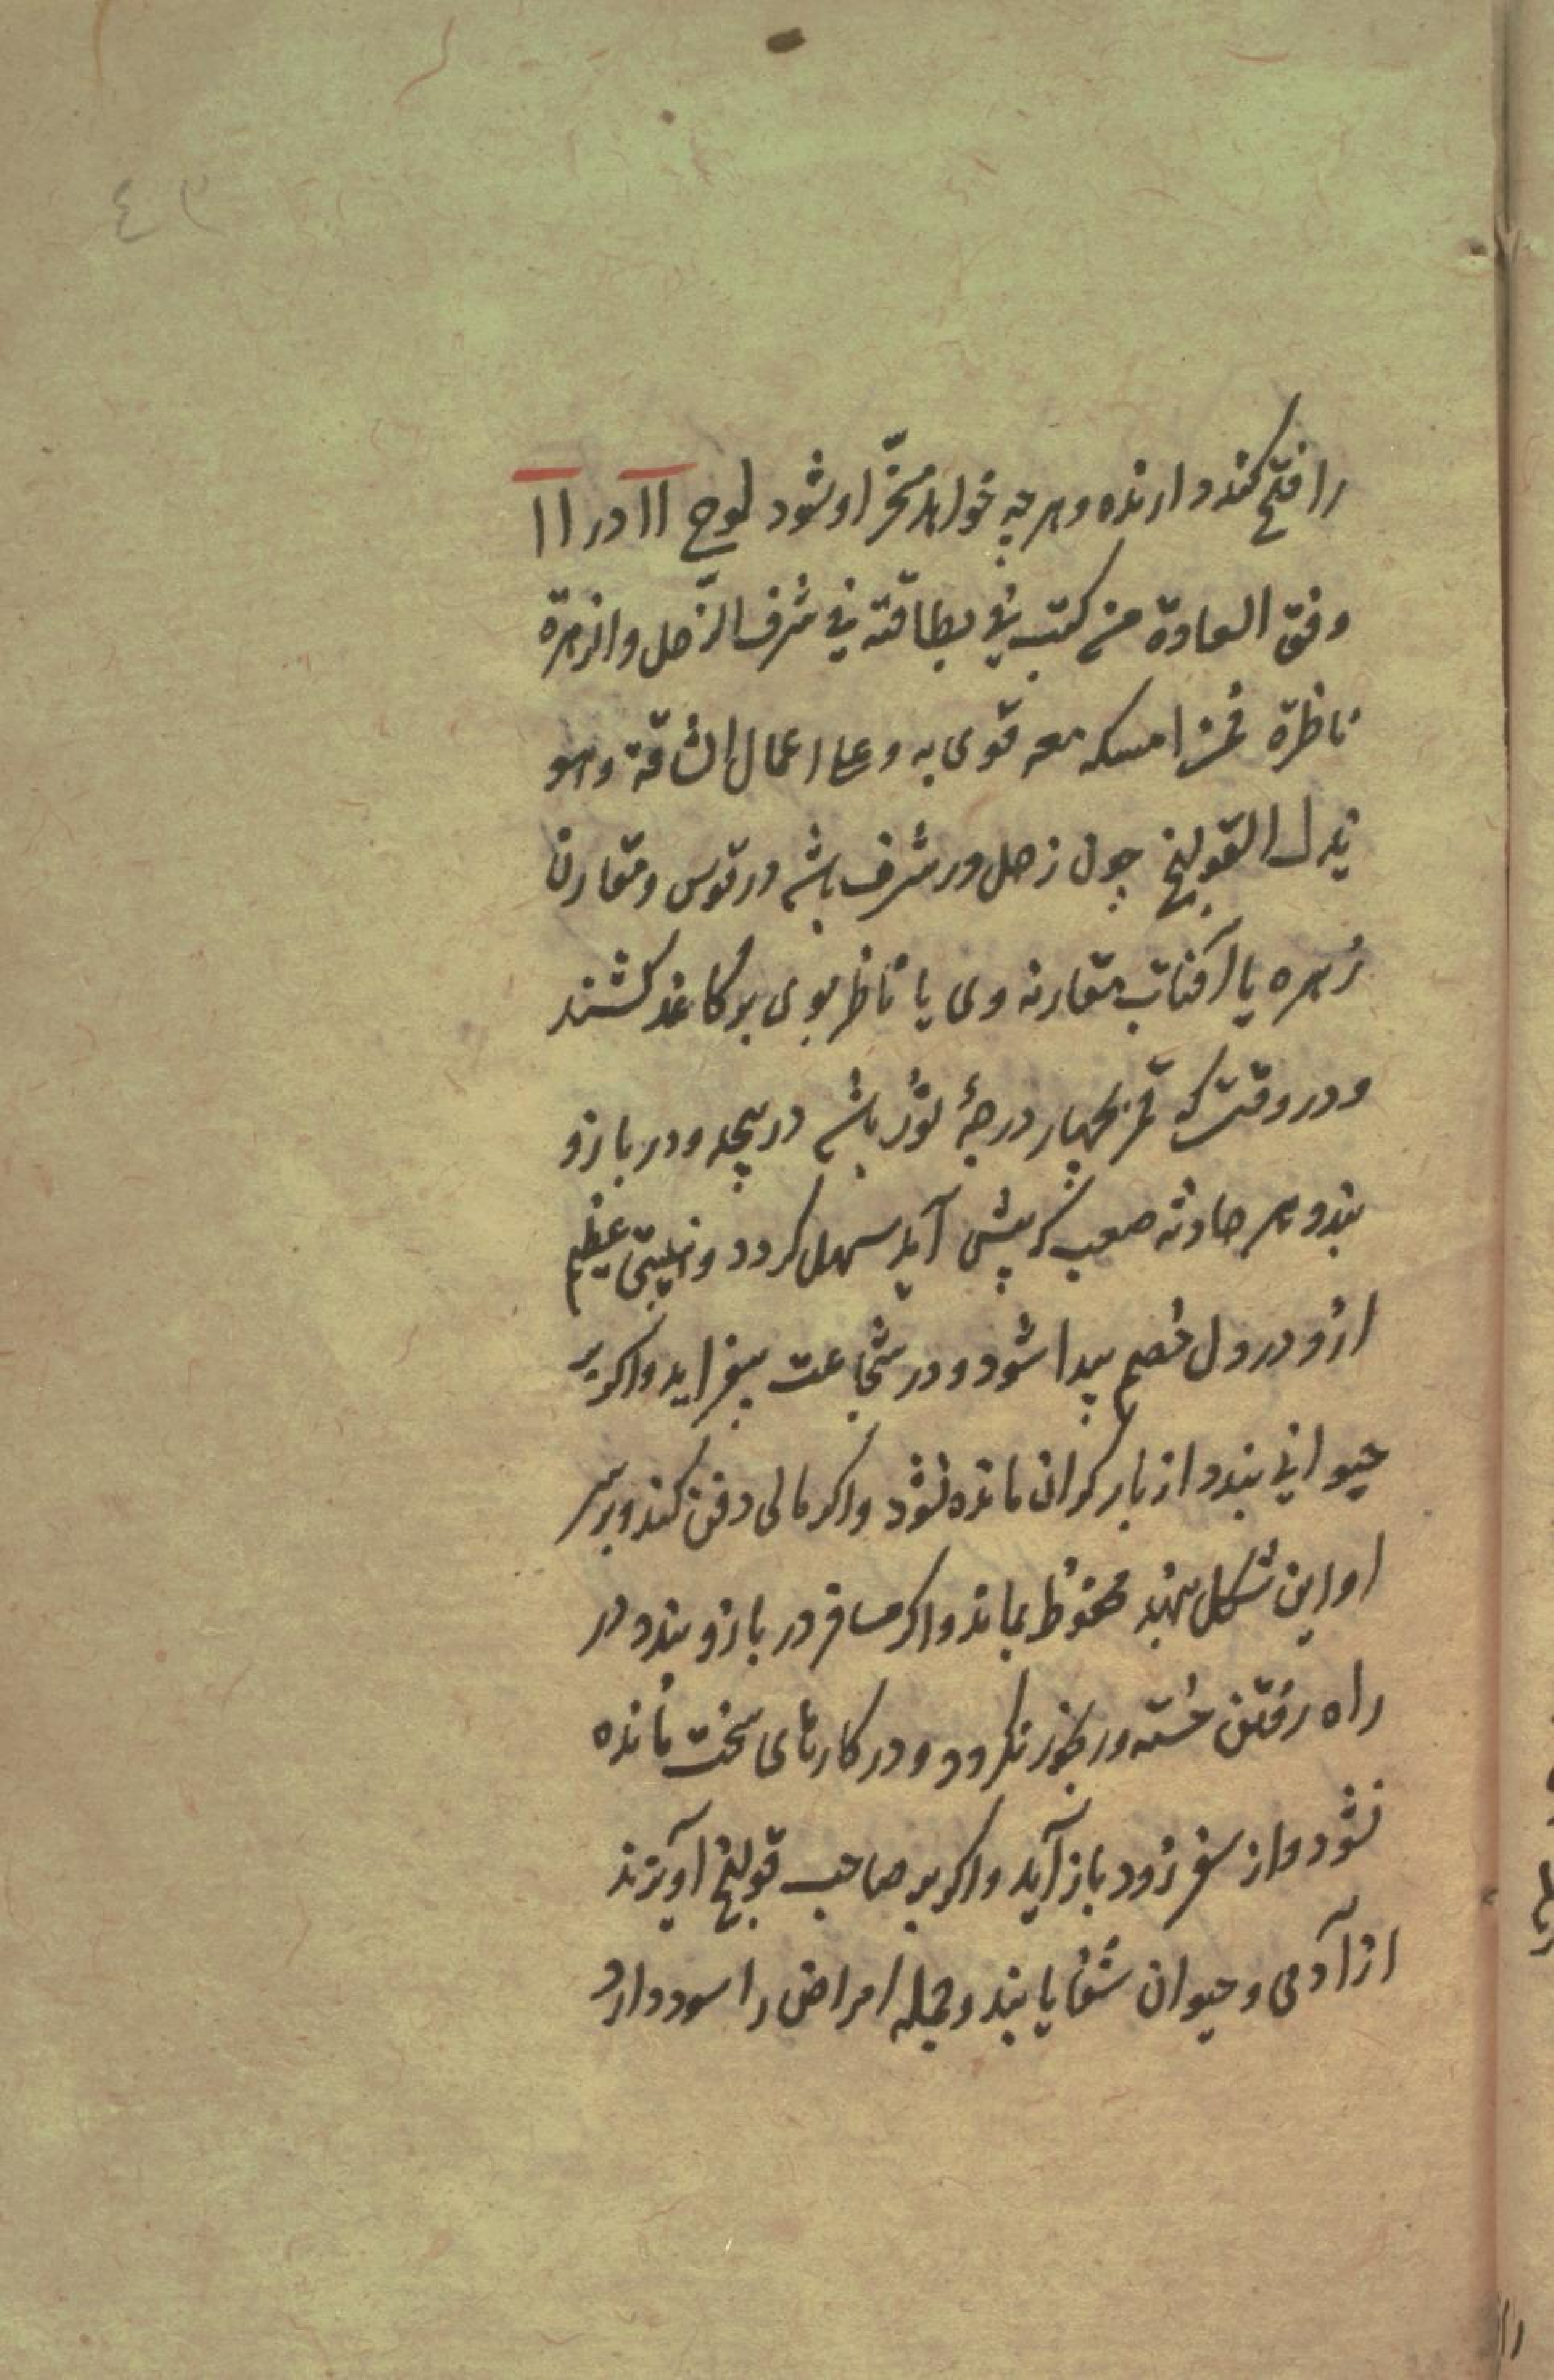 ٤٢
را فتح کند دارنده و هر چه خواهد مسخّر او شود لوح ١١ در ١١
وفق العادة من کتب فی بطاقته فی شرف الزّحل والزهرة
ناظرة فمن امسکه معه قوی به وعلی اعمال الشاقة وهو
یدل القولنج چون زحل در شرف باشد در قوس و مقارن
زهره یا آفتاب مقارنه وی یا ناظر بوی بر کاغذ کشند
و در وقت که قمر بچهار درجهٔ ثور باشد در پیچد و در بازو
بندد هر حادثه صعب که پیش آید سهل کردد و هیبتی عظیم
ازو در دل خصم پیدا شود و در شجاعت بیفزاید و اکر بر
حیوانی بندد از بار کران مانده نشود و اکر مالی دفن کند و بر سر
او این شکل نهند محفوظ بماند و اکر مسافر در بازو بندد در
راه رفتن خسته و رنجور نکردد و در کارهای سخت مانده
نشود و از سفر زود باز آید و اکر بر صاحب قولنج آویزند
از آدمی و حیوان شفا یابند و جمله امراض را سود دارد